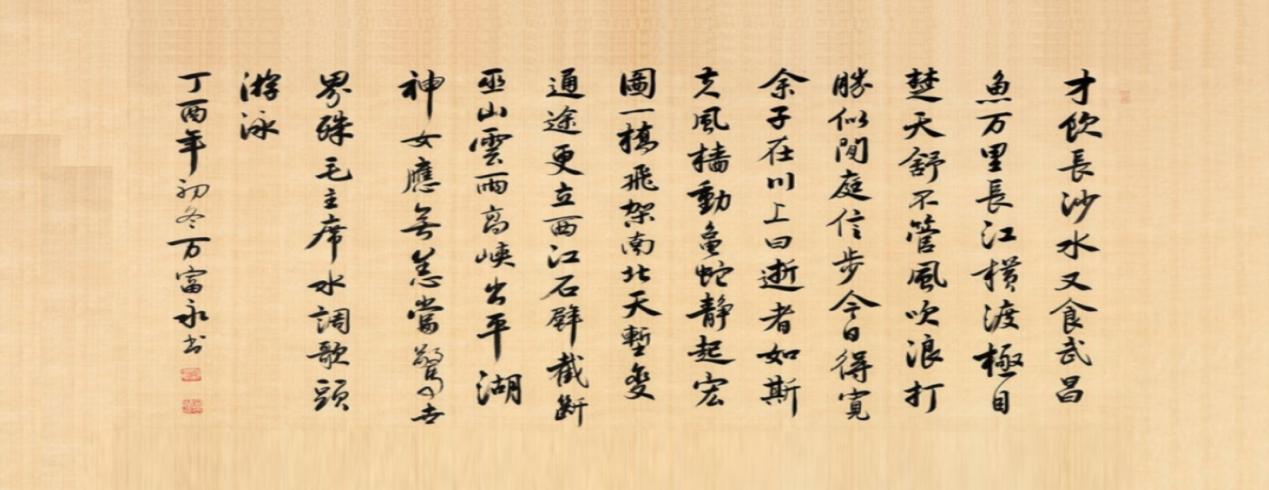 才飲長沙水又食武昌
魚万里長江橫渡極目
楚天舒不管風吹浪打
勝似閒庭信步今日得寛
余子在川上曰逝者如斯
夫風檣動龜蛇靜起宏
圖一橋飛架南北天塹变
通途更立西江石壁截斷
巫山雲雨高峽出平湖
神女應無恙當驚世
界殊毛主席水調歌頭
游泳
丁酉年初冬万富永书